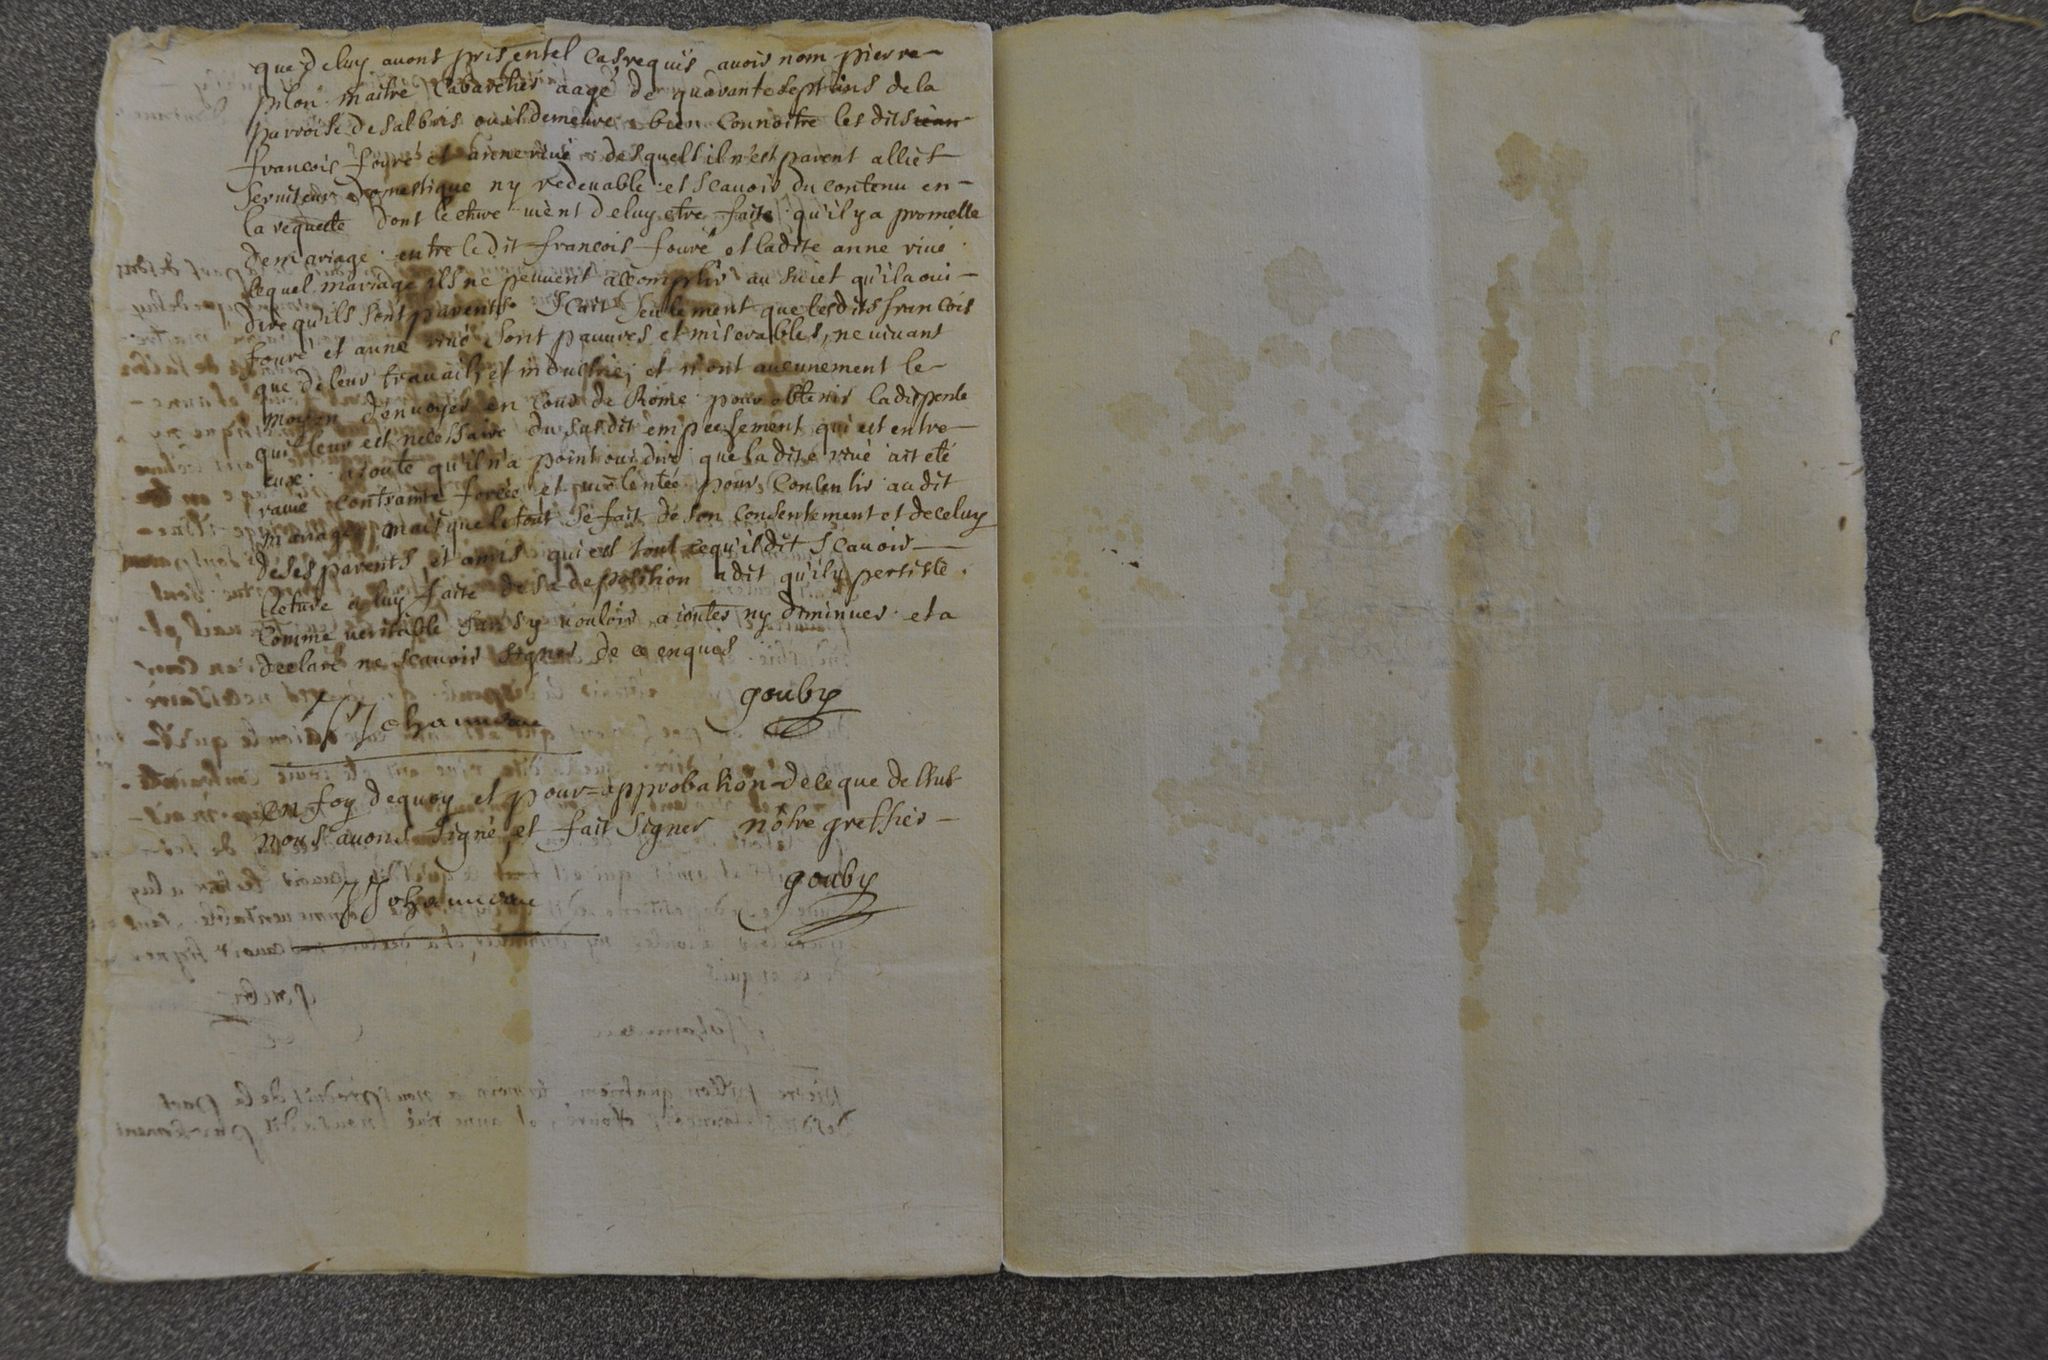 que de luy avons pris en tel cas requis avoir nom pierre
pilon maitre Cabartier aagé de quarante sept ans de la
parroise de salbris ou il demeure bien Connoitre les dits
francois fouré et anne riué desquels il n'est parent alliés
seruiteur domestique ny redeuable et scauoir du contenu en
la requette dont lecture uient de luy etre faite qu'il y a promesse
de mariage entre le dit francois fouré et ladite anne riué
lequel mariage ils ne peuuent accomplir au suiet qu'il a oui
dire qu'ils sont parents scait seulement que lesdits francois
fouré et anne riué sont pauures et miserables, ne uiuant
que de leur trauail, et industrie, et n'ont aucunement le
moyen d'enuoyer en Cour de Rome pour obtenir la dispense
qui leur est necessaire du susdit empechement qui est entre
eux aioute qu'il n'a point oui dire que la dite riué ait eté
rauie contrainte forcée et uiolentée pour Consentir audit
mariage mais que le tout se fait de son Consentement et de celuy
de ses parents et amis qui est tout ce qu'il dit scauoir
lecture a luy faite de sa deposition a dit qu'il y persiste
comme ueritable sans y uouloir aiouter ny diminuer et a
declaré ne scauoir signer de ce enquis
gouby
Johanneau
en foy de quoy et pour approbation de le que dessus
nous auons signé, et fait signer nôtre greffier
gouby
Johanneau